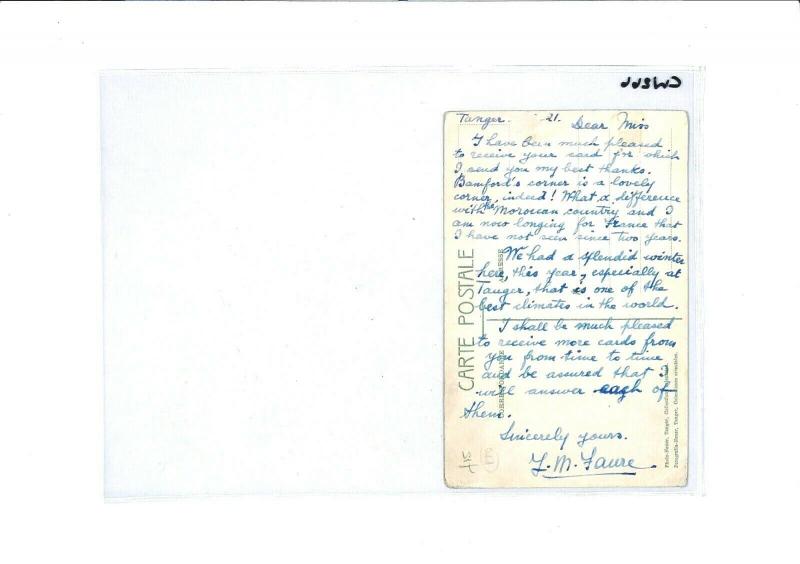 Tanger. 21.
Dear Miss
I have been much pleased
to receive your card for which
I send you my best thanks.
Bamford's corner is a lovely
corner, indeed! What a difference
with the Moroccan country and I
am now longing for France that
I have not seen since two years.
We had a splendid winter
here, this year, especially at
Tanger, that is one of the
best climates in the world.
I shall be much pleased
to receive more cards from
you from time to time
and be assured that I
will answer each of
them.
Sincerely yours.
J. M. Faure.
CARTE POSTALE
CORRESPONDANCE
ADRESSE
£15